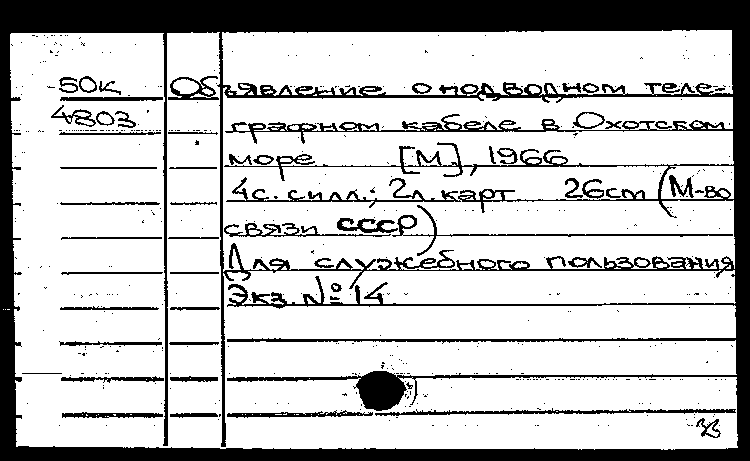 50к Объявление о подводном теле-
4803 графном кабеле в Охотском
море. [М], 1966
4с. с илл.; 2л. карт 26cm (М-во
связи СССР)
Для служебного пользования
Экз. № 14